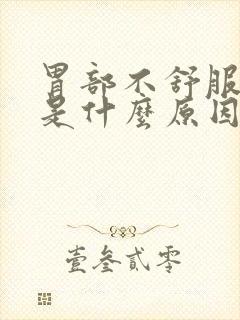 胃部不舒服
是什麼原因
壹叁貳零